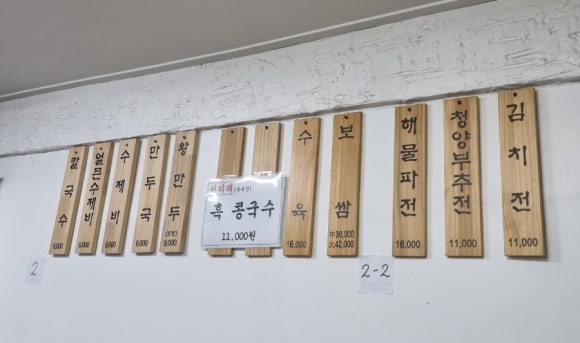 칼국수
9,000
얼큰수제비
9,000
수제비
9,000
만두국
9,000
왕만두
(5개)
9,000
서리태(국내산)
흑 콩국수
11,000원
수육
16,000
보쌈
中 30,000
大 42,000
해물파전
16,000
청양부추전
11,000
김치전
11,000
2
2-2